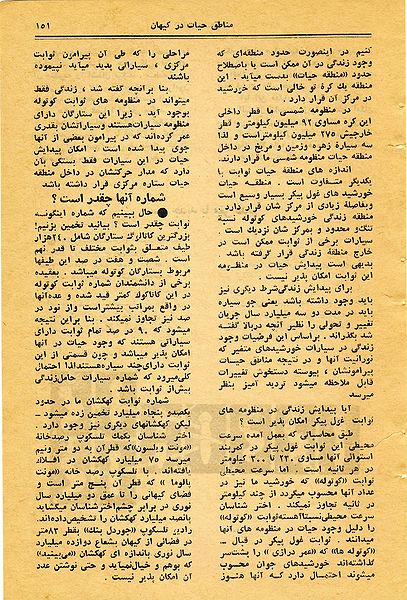 مناطق حیات در کیهان
۱۵۱
کنیم در اینصورت حدود منطقه‌ای که
وجود زندگی در آن ممکن است یا باصطلاح
حدود «منطقه حیات» بدست میآید . این
منطقه یك کرهٔ تو خالی است که خورشید
در مرکز آن قرار دارد .
در منظومه شمسی ما قطر داخلی
این کره مساوی ۹۲ میلیون کیلومتر و قطر
خارجیش ۲۷۵ میلیون کیلومتر است و لذا
سه سیارهٔ زهره وزمین و مریخ در داخل
منطقه حیات منظومه شمسی ما قرار دارند.
اندازه های منطقه حیات با
یکدیگر متفاوت است . منطقه حیات
خورشید های غول پیکر بسیار وسیع است
وبفاصلهٔ زیادی از مرکز شان قرار دارد .
منطقه زندگی خورشیدهای کوتوله نسبة
تنگ و محدود و بمرکز شان نزدیك است .
سیارات برخی از ثوابت ممکن است در
خارج منطقه زندگی قرار گرفته باشد .
بدیهی است پیدایش حیات در منظومه
این ثوابت امکان پذیر نیست .
برای پیدایش زندگی‌شرط دیگری نیز
باید وجود داشته باشد یعنی جو سیاره
باید در مدت دو سه میلیارد سال جریان
تغییر و تحولی را نظیر آنچه دربالا گفته
شد بگذراند . براساس این فرضیات وجود
زندگی در سیارات خورشیدهای متغیر که
نورانیت آنها و در نتیجه مناطق زیستی
پیرامونشان ، پیوسته دستخوش تغییرات
قابل ملاحظه میشود تردید آمیز بنظر
میرسد
آیا پیدایش زندگی در منظومه های
ثوابت غول پیکر امکان پذیر است ؟
طبق محاسباتی که بعمل آمده سرعت
محیطی این ثوابت غول پیکر در کمربند
استوائی آنها مساوی ۲۳۰ تا ۳۰۰ کیلومتر
در هر ثانیه است . اما سرعت محیطی
ثوابت «کوتوله» که خورشید ما نیز در
عداد آنها محسوب میگردد از چند کیلومتر
در ثانیه تجاوز نمیکند . اختر شناسان
سرعت محیطی‌نسبتاآهسته‌ثوابت «کوتوله»
را دلیل وجود حیات در منظومه های آنها
میدانند . ثوابت غول پیکر در قبال ـ
«کوتوله ها» که «عمر درازی » را پشت‌سر
گذاشته‌اند خورشیدهای جوان محسوب
میشوند احتمال دارد کـه آنها هنـوز
مراحلی را که طی آن پیرامون ثوابت
مرکزی ، سیاراتی پدید میآید نپیموده
باشند
بنا برآنچه گفته شد ، زندگی فقط
میتواند در منظومه های ثوابت کوتوله
بوجود آید . زیرا این ستارگان دارای
منظومه سیارات‌هستند وسیاراتشان بقدری
عمر کرده‌اند که در پیرامون بعضی از آنها
جوی پیدا شده است . امکان پیدایش
حیات در این سیارات فقط بستگی بآن
دارد که مدار حرکتشان در داخل منطقه
حیات ستاره مرکزی قرار داشته باشد
شماره آنها چقدر است ؟
● حال ببینیم که شماره اینگونه
ثوابت چقدر است ؟ بیائید تخمین بزنیم:
بزرگترین کاتالوگ ستارگان شامل .۲۴هزار
طیف متعلق بثوابت مختلف تا قدر نهم
است . شصت و هفت در صد این طیفها
مربوط بستارگان کوتوله میباشد . بعقیده
برخی از دانشمندان شماره کوتوله ها
در این کاتالوگ کمتر قید شده و عده‌آنها
در واقع بمراتب بیشتراست واز نود در
صد نیز تجاوز میکند . بنا براین نتیجه
میشود که ۹۰ در صد تمام ثوابت دارای
سیاراتی هستند که وجود حیات در آنها
امکان پذیر میباشد و چون قسمتی از این
ثوابت دارای‌چند سیاره‌هستندلذا احتمال
کلی‌میرود که شماره سیارات حامل‌زندگی
بیش‌از ثوابت باشد .
شماره ثوابت کهکشان ما در حدود
یکصدو پنجاه میلیارد تخمین زده میشود ـ
لیکن کهکشانهای دیگری نیز وجود دارد .
اختر شناسان بکمك تلسکوپ رصدخانة
«مونت ویلسون» که قطرآن به دو متر ونیم
میرسد ۷۵ میلیون کهکشان در افـلاك
یافته‌اند . با تلسکوپ رصد خانه «مونت
بالوما » که قطر آن پنـج متر است و
فضای کیهانی را تا عمق دو میلیارد سال
نوری در برابر چشم‌اخترشناسان میکشاید
بانصد میلیارد کهکشان را تشخیص‌داده‌اند.
رادیو تلسکوپ «جوردل بنك» بقطر ۸۳متر
در فضائی از کیهان بشعاع دوازده میلیارد
سال نوری باندازه ای کهکشان «می‌بیند»
که بوهم و خیال‌نمیآید و حتی نوشتن عدد
آن امکان پذیر نیست .